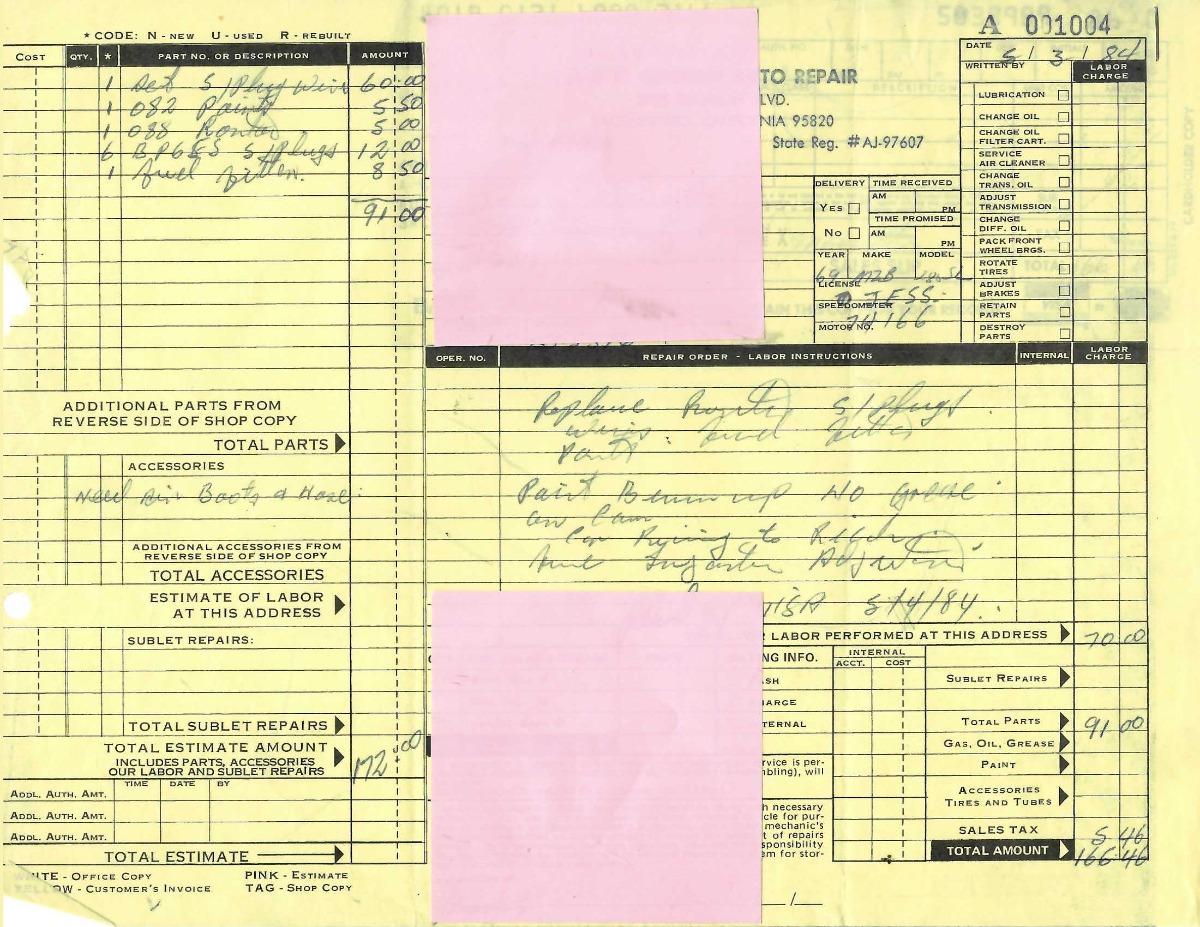 * CODE: N - NEW U - USED R - REBUILT
COST QTY. * PART NO. OR DESCRIPTION AMOUNT
1 Set S/Plug Wire 60.00
1 082 Points 5 50
1 088 5 00
6 BP6ES S/Plugs 12 00
1 fuel 8 50
91.00
ADDITIONAL PARTS FROM
REVERSE SIDE OF SHOP COPY
TOTAL PARTS
ACCESSORIES
Need Air Boots & Hose
ADDITIONAL ACCESSORIES FROM
REVERSE SIDE OF SHOP COPY
TOTAL ACCESSORIES
ESTIMATE OF LABOR
AT THIS ADDRESS
SUBLET REPAIRS:
TOTAL SUBLET REPAIRS
TOTAL ESTIMATE AMOUNT
INCLUDES PARTS, ACCESSORIES
OUR LABOR AND SUBLET REPAIRS
172.00
TIME DATE BY
ADDL. AUTH. AMT.
ADDL. AUTH. AMT.
ADDL. AUTH. AMT.
TOTAL ESTIMATE
WHITE - OFFICE COPY PINK - ESTIMATE
OW - CUSTOMER'S INVOICE TAG - SHOP COPY
A 001004
TO REPAIR
LVD.
NIA 95820
State Reg. #AJ-97607
DATE 5/ 3 / 84
WRITTEN BY
LABOR CHARGE
LUBRICATION
CHANGE OIL
CHANGE OIL
FILTER CART.
SERVICE
AIR CLEANER
CHANGE
TRANS. OIL
ADJUST
TRANSMISSION
CHANGE
DIFF. OIL
PACK FRONT
WHEEL BRGS.
ROTATE
TIRES
ADJUST
BRAKES
RETAIN
PARTS
DESTROY
PARTS
DELIVERY TIME RECEIVED
YES AM PM
TIME PROMISED
NO AM PM
YEAR MAKE MODEL
69 MZB
LICENSE
JESS
SPEEDOMETER
74166
MOTOR NO.
OPER. NO. REPAIR ORDER - LABOR INSTRUCTIONS INTERNAL LABOR CHARGE
Replace S/Plugs
Wires fuel
Points
No Grease
on Cam
Car to
and
5/4/84
LABOR PERFORMED AT THIS ADDRESS 70 00
NG INFO. INTERNAL
ACCT. COST
ASH
SUBLET REPAIRS
HARGE
TERNAL
TOTAL PARTS 91 00
GAS, OIL, GREASE
PAINT
ACCESSORIES
TIRES AND TUBES
SALES TAX 5 46
TOTAL AMOUNT 166.46
rvice is per-
mbling), will
h necessary
cle for pur-
mechanic's
t of repairs
sponsibility
em for stor-